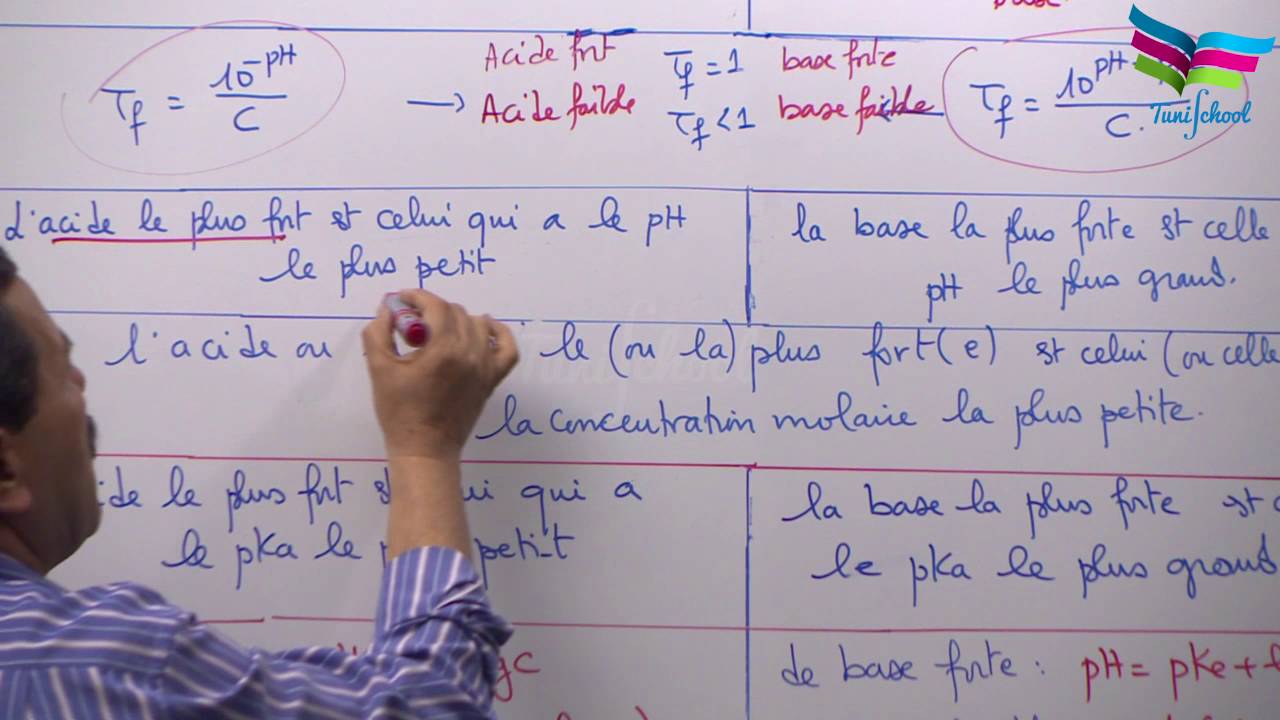 base
Tuni School
τf = 10^-pH / C
→ Acide fort τf = 1 base forte
Acide faible τf < 1 base faible
τf = 10^pH / C.
L'acide le plus fort est celui qui a le pH
le plus petit
la base la plus forte est celle
pH le plus grand.
l'acide ou le (ou la) plus fort(e) est celui (ou celle
la concentration molaire la plus petite.
le plus fort qui a
le pKa le petit
la base la plus forte est
le pKa le plus grand
de base forte : pH = pKe +